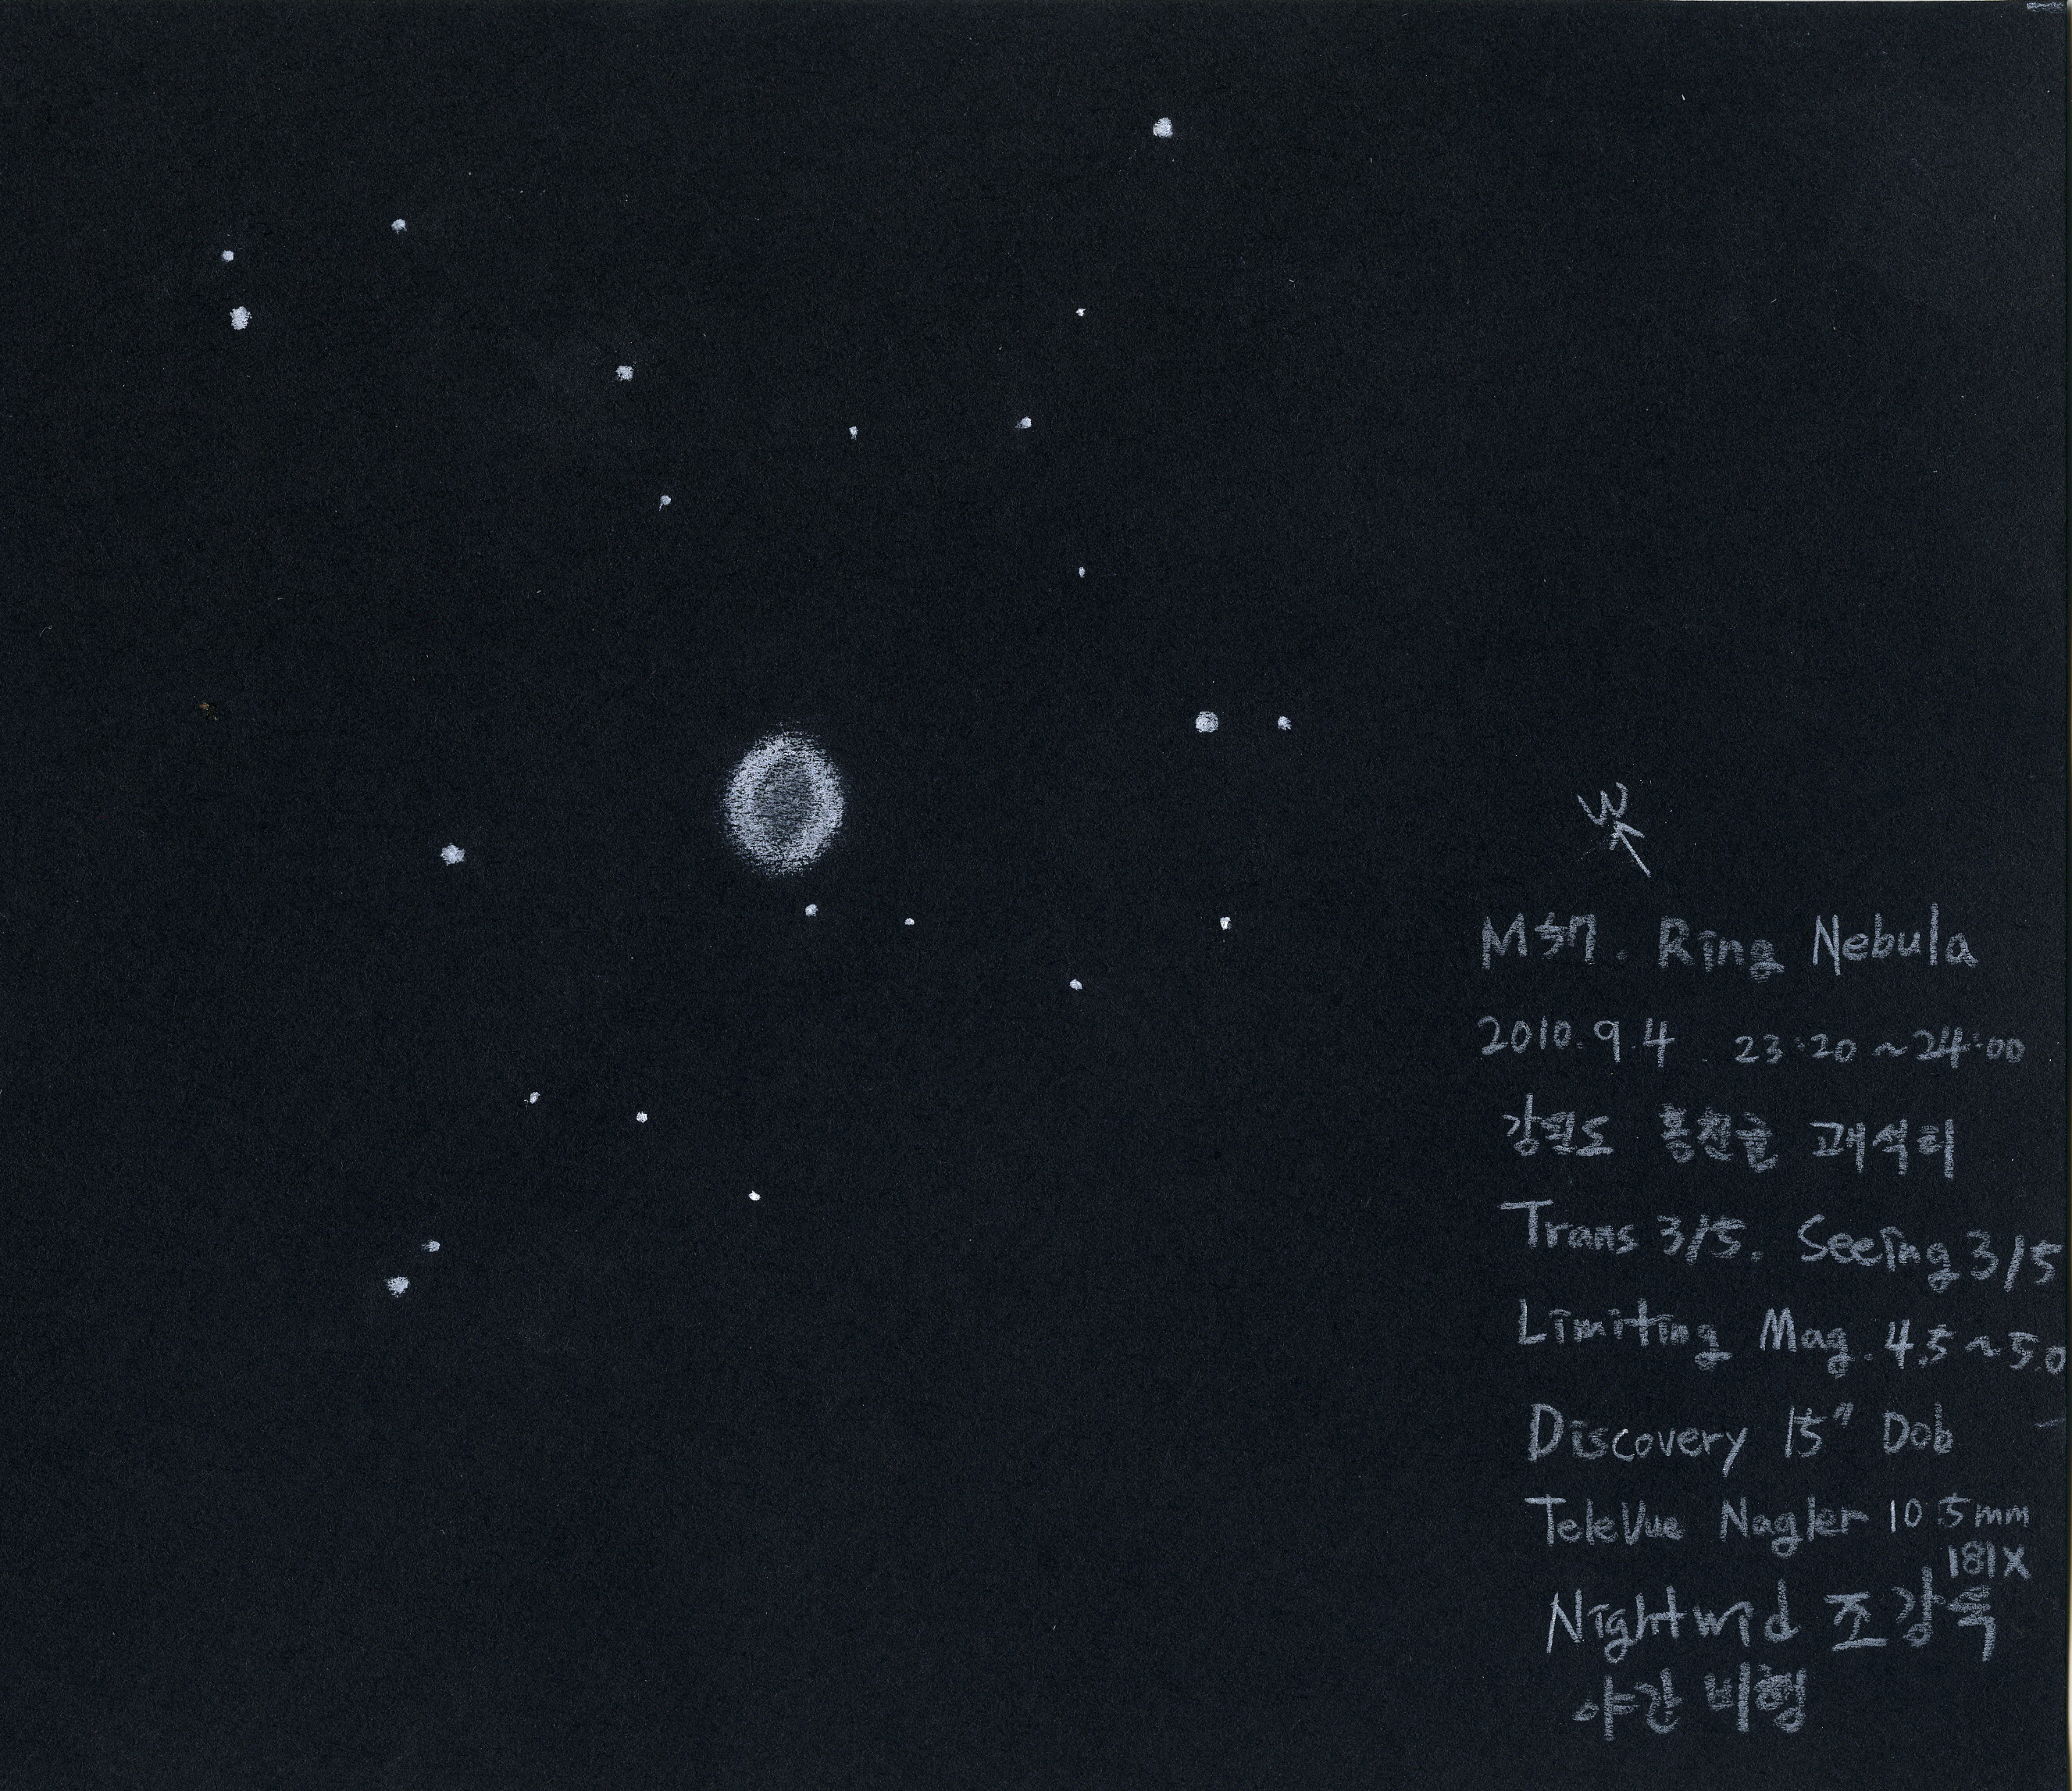 W
M57. Ring Nebula
2010.9.4. 23:20~24:00
강원도 홍천군 괘석리
Trans 3/5. Seeing 3/5
Limiting Mag. 4.5~5.0
Discovery 15" Dob
TeleVue Nagler 10.5mm
181X
Nightwid 조강욱
야간비행